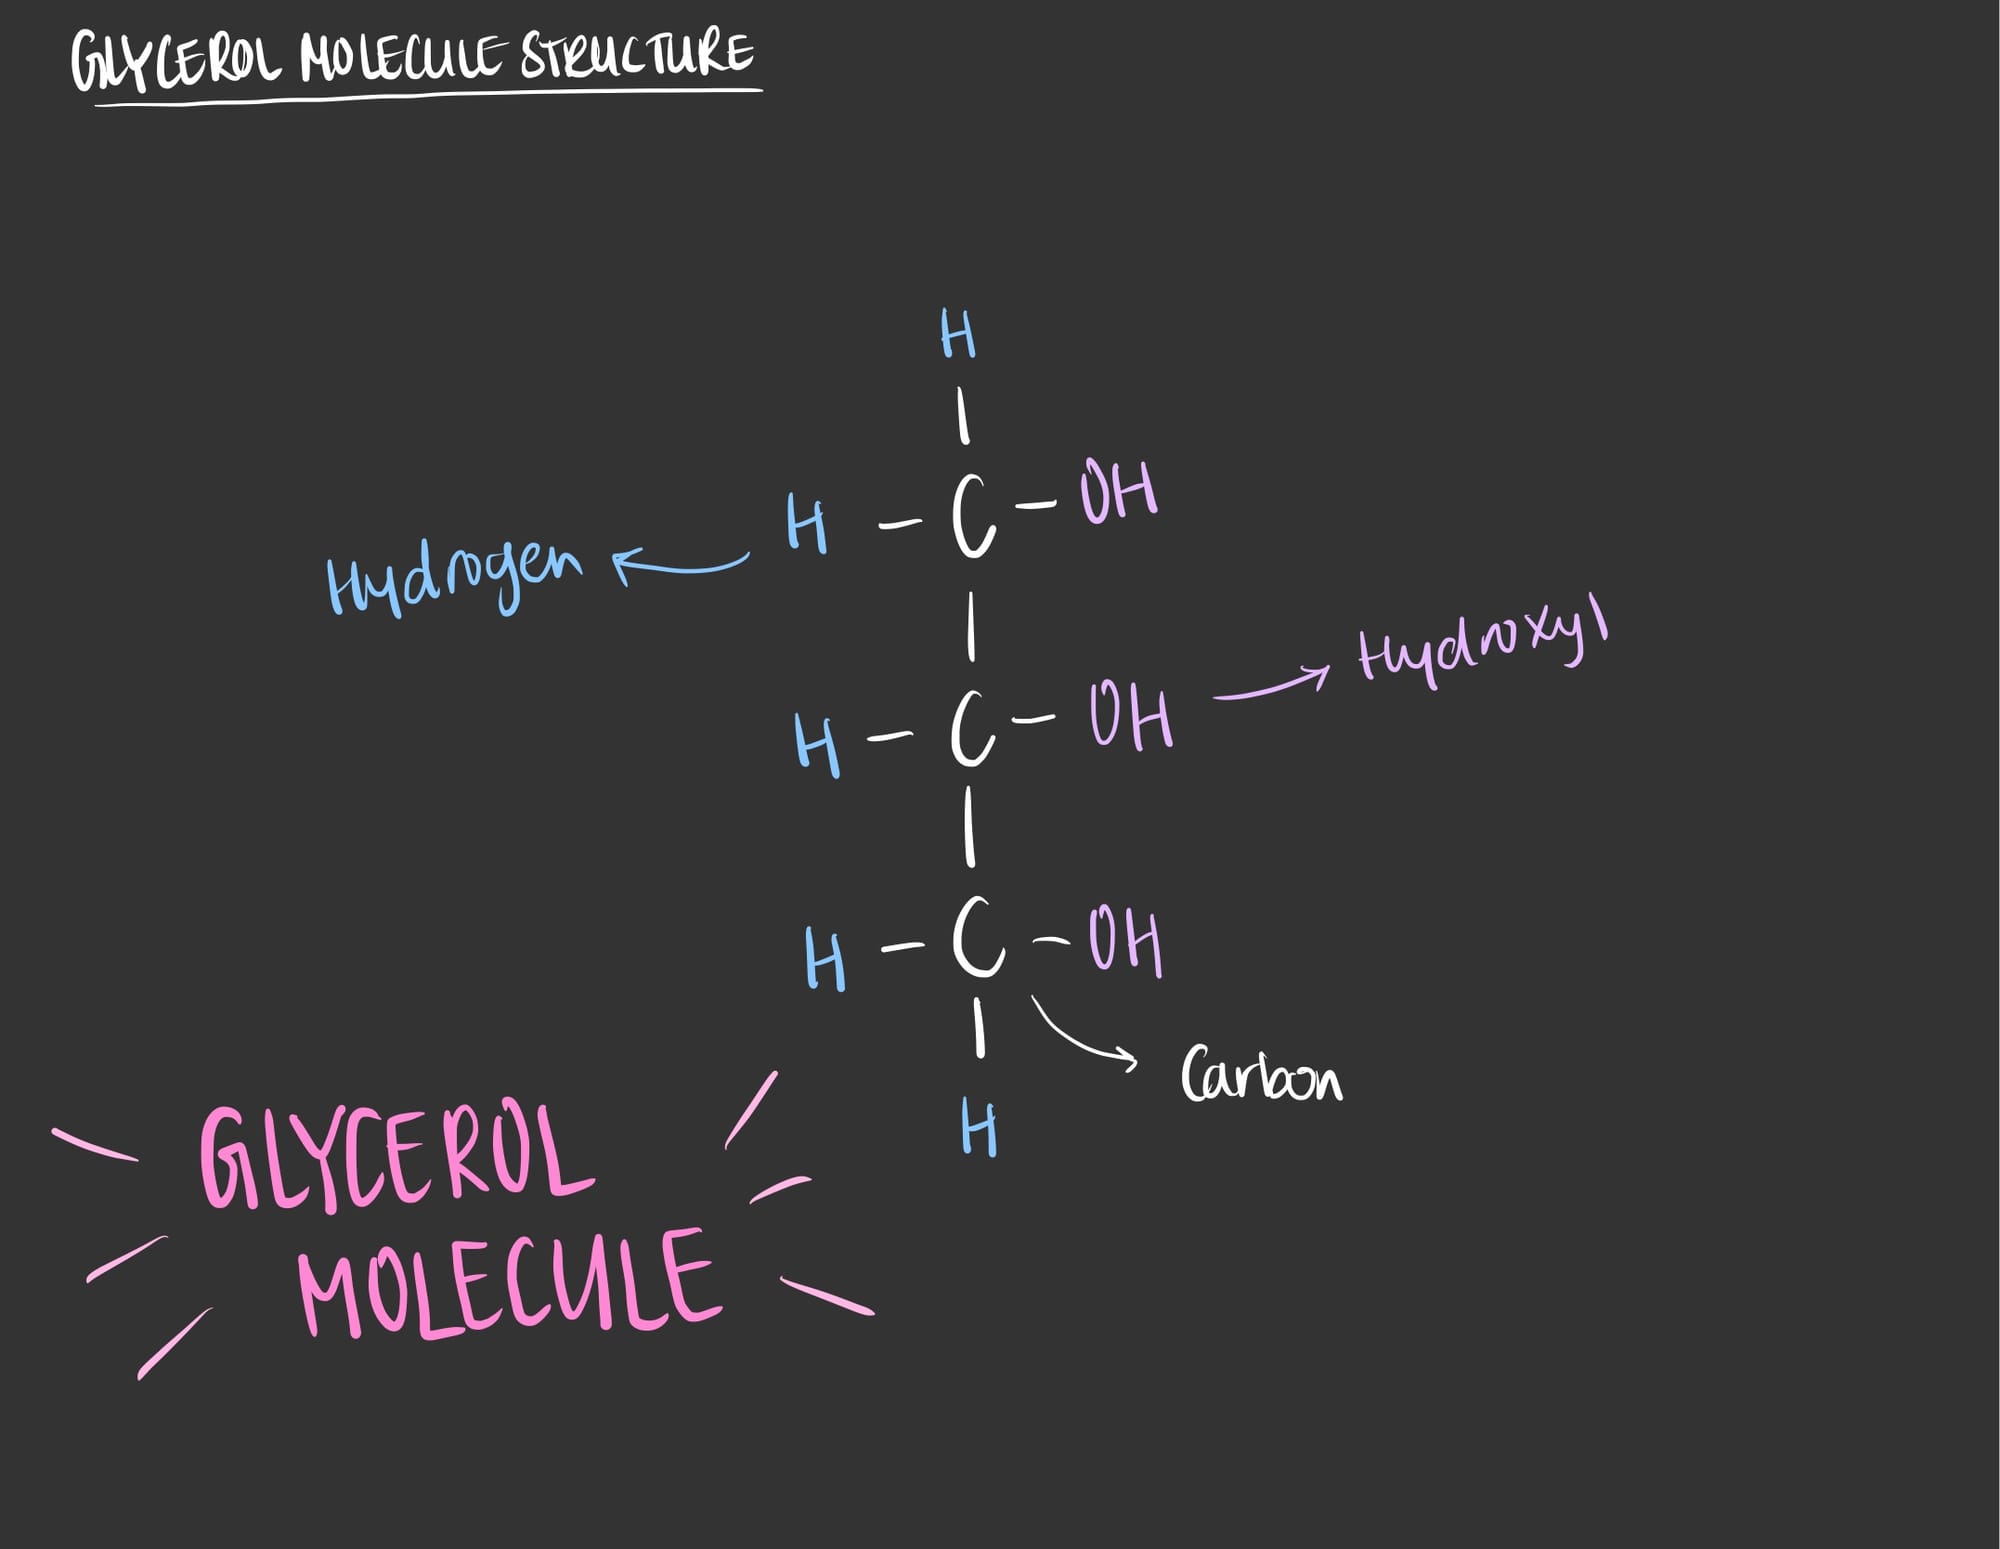 GLYCEROL MOLECULE STRUCTURE
H
H - C - OH
Hydrogen
Hydroxyl
H - C - OH
H - C - OH
Carbon
H
GLYCEROL
MOLECULE